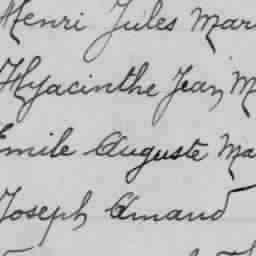 Henri Jules Mar
Hyacinthe Jean M
Emile Auguste Ma
Joseph Amand